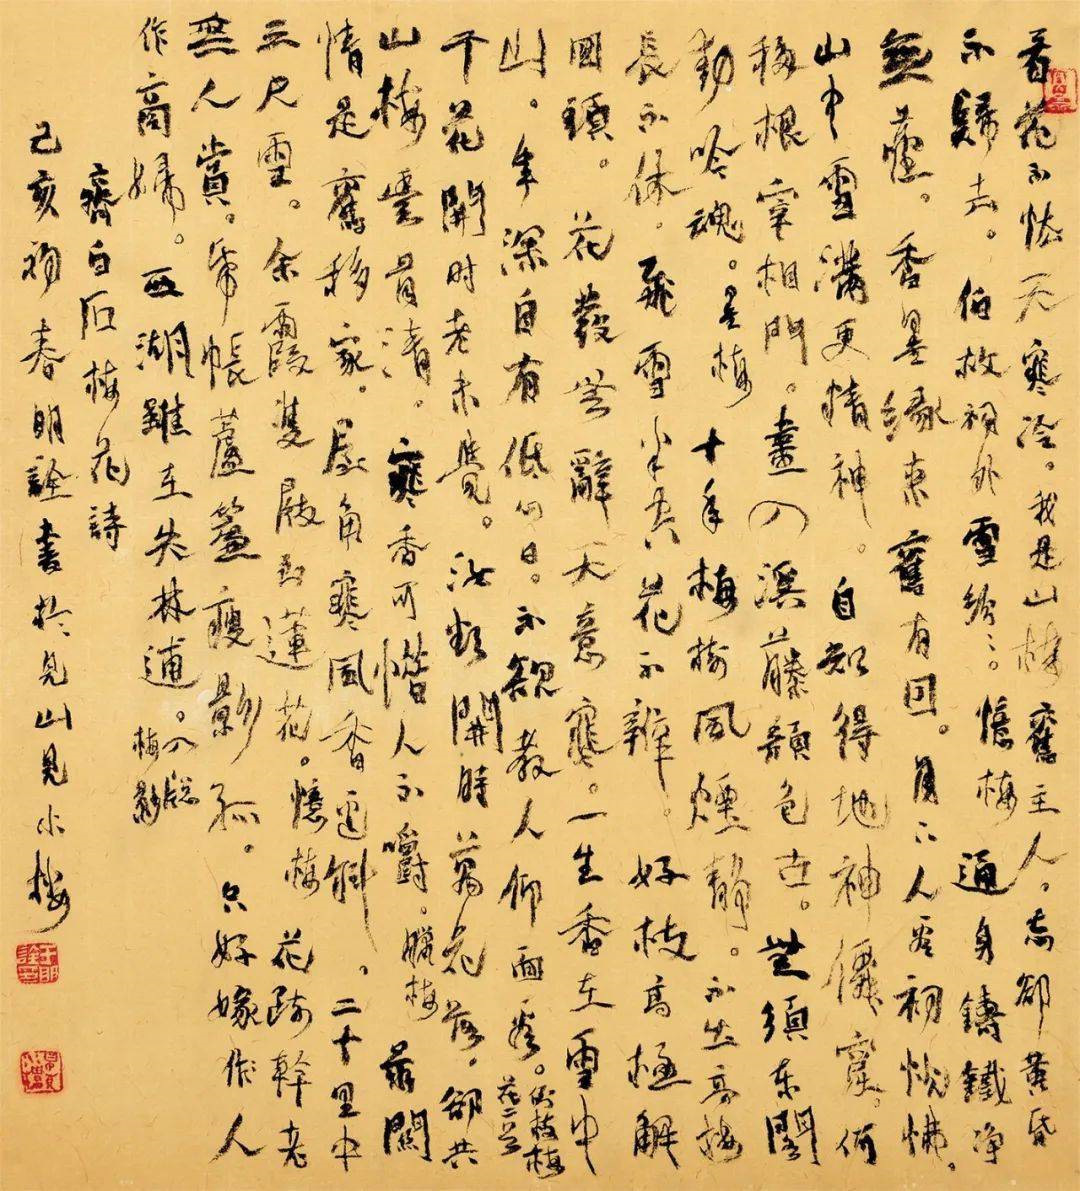 看花不怯天寒冷。我是山梅舊主人。忘卻黄昏
不歸去。伯故祠外雪紛々。憶梅 通身鑄鐵净
無塵。香墨緣來舊有因。月下人看初恍惚。
山中雪满更精神。自知得地神僊窟。何
移根宰相門。畫入溪藤顏色古。無須東閣
動吟魂。墨梅 十年梅樹風煙静。不出高樓
長不休。飛雪半共花不辨。好枝高極解
回頭。花發豈辭天意寒。一生香在雪中
山。年深自有低何日。不親教人仰面看。倒枝梅花二首
千花開时老未覺。汝輕開時萬花落。卻共
山梅骨清。寒香可惜人不嚼。臘梅 前闕
情是舊移家。屋角寒風香逕斜。二十里中
三尺雪。余霞雙屐到蓮花。憶梅 花疏幹老
無人賞。紙帳蘆簾瘦影孤。只好嫁作人
作商婦。西湖難在失林逋。入窗梅影
齊白石梅花詩
己亥初春明詮書於見山見水樓